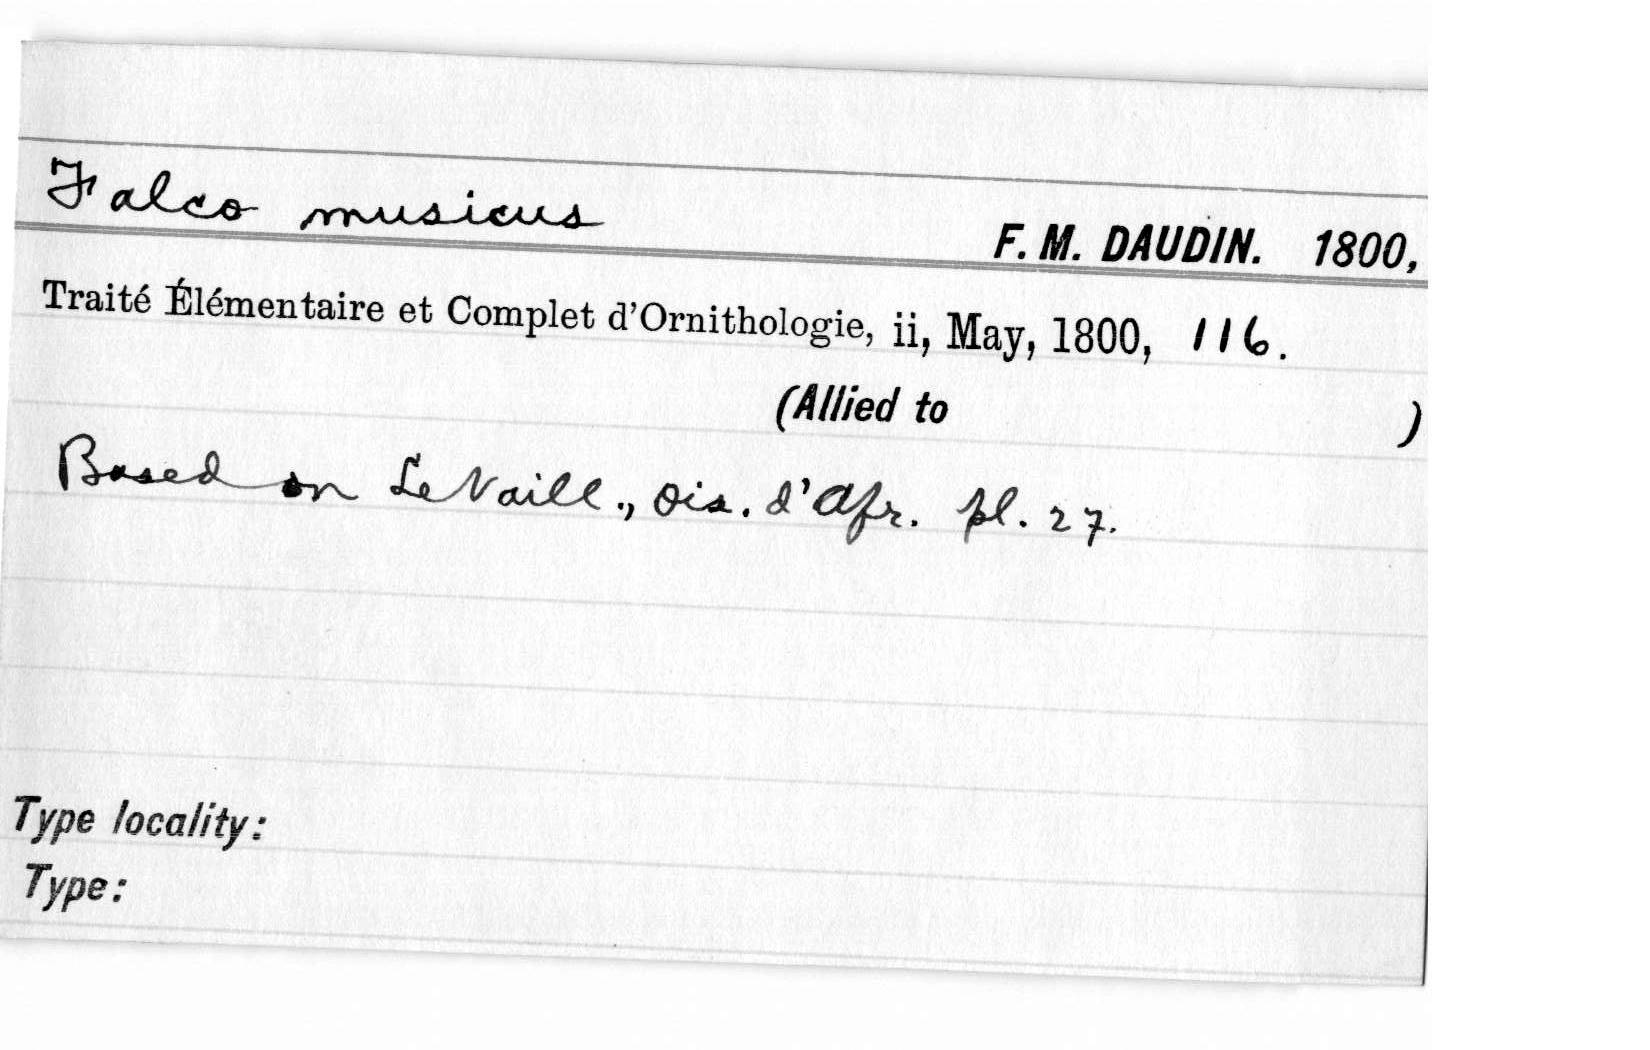 Falco musicus
F. M. DAUDIN. 1800,
Traité Élémentaire et Complet d'Ornithologie, ii, May, 1800, 116.
(Allied to )
Based on LeVaill., Ois. d'Afr. pl. 27.
Type locality:
Type: